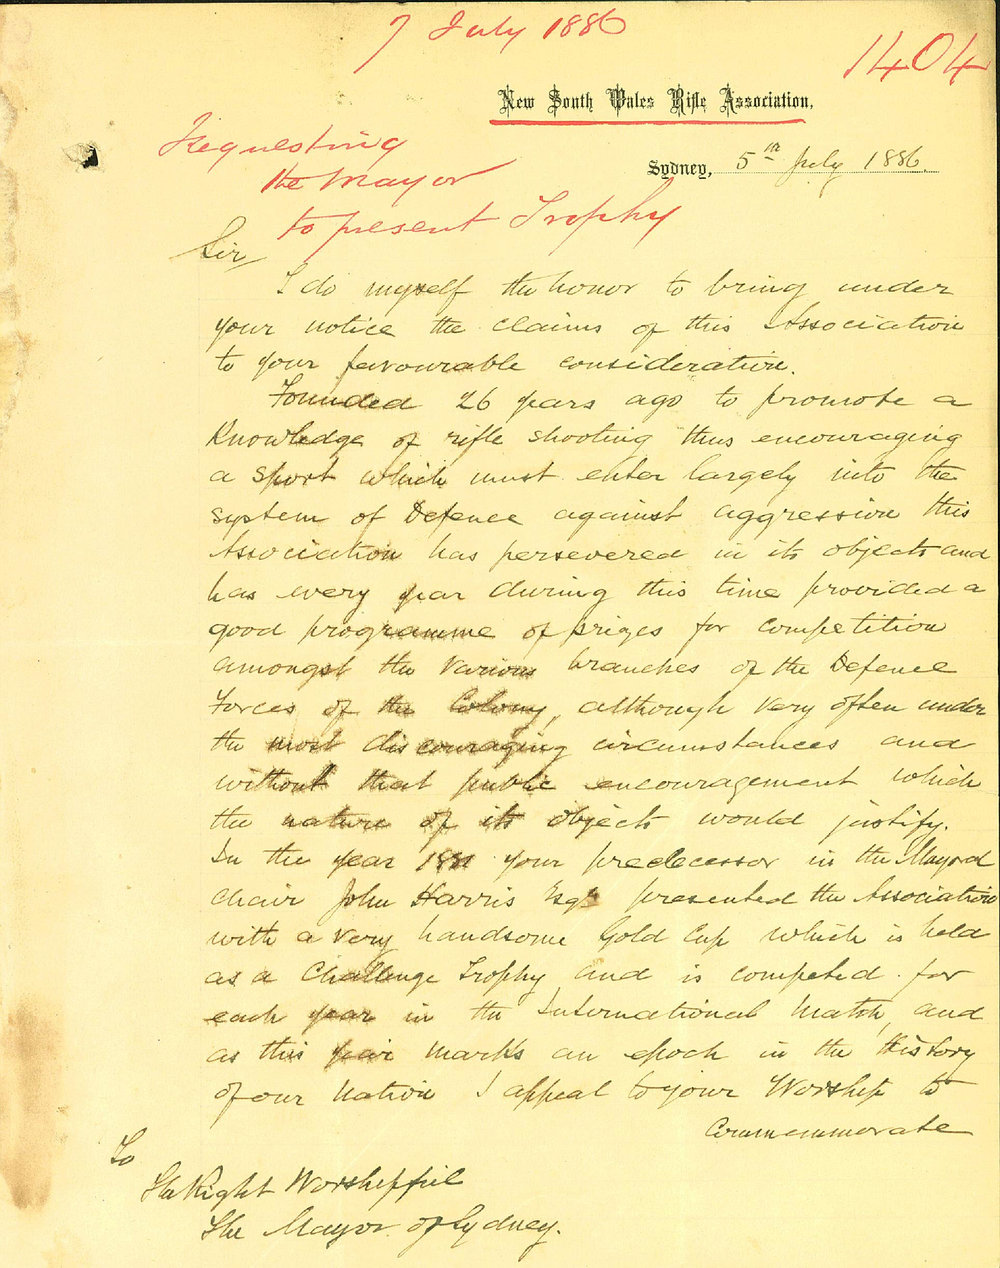 7 July 1886
1404
New South Wales Rifle Association.
Requesting
the Mayor
to present Trophy
Sydney, 5th July 1886.
Sir
I do myself the honor to bring under
your notice the claims of this Association
to your favourable consideration.
Founded 26 years ago to promote a
Knowledge of rifle shooting thus encouraging
a sport which must enter largely into the
system of Defence against aggression this
Association has persevered in its objects and
has every year during this time provided a
good programme of prizes for competition
amongst the various branches of the Defence
Forces of the Colony, although very often under
the most discouraging circumstances and
without that public encouragement which
the nature of its objects would justify.
In the year your predecessor in the Mayoral
chair John Harris Esqr presented the Association
with a very handsome Gold Cup which is held
as a Challenge Trophy and is competed for
each year in the International Match, and
as this year marks an epoch in the History
of our Nation I appeal to your Worship to
Commemmorate
To
The Right Worshipful
The Mayor of Sydney.